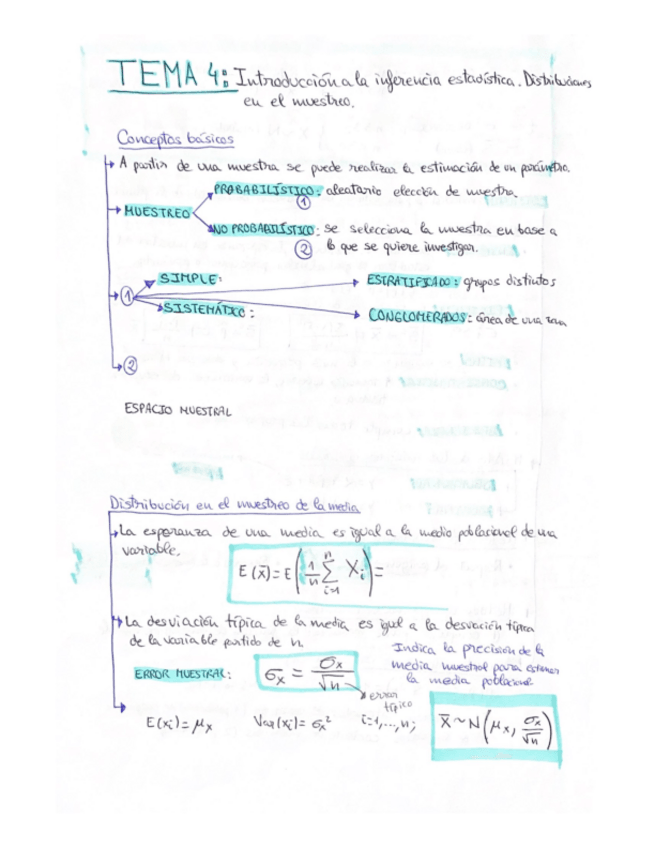 TEMA 4: Introducción a la inferencia estadística. Distribuciones
en el muestreo.
Conceptos básicos
A partir de una muestra se puede realizar la estimación de un parámetro.
MUESTREO
PROBABILÍSTICO: aleatorio elección de muestra
①
NO PROBABILÍSTICO: se selecciona la muestra en base a
② lo que se quiere investigar.
① SIMPLE: ESTRATIFICADO: grupos distintos
SISTEMÁTICO: CONGLOMERADOS: área de una
②
ESPACIO MUESTRAL
Distribución en el muestreo de la media
La esperanza de una media es igual a la media poblacional de una
variable.
E(x̄) = E(1/n ∑ⁿᵢ₌₁ Xᵢ) =
La desviación típica de la media es igual a la desviación típica
de la variable partido de n.
Indica la precisión de la
media muestral para estimar
la media poblacional
ERROR MUESTRAL: σx̄ = σx/√n
error
típico
E(xi) = μx Var(xi) = σx² i=1,...,n; X̄ ~ N(μx, σx/√n)